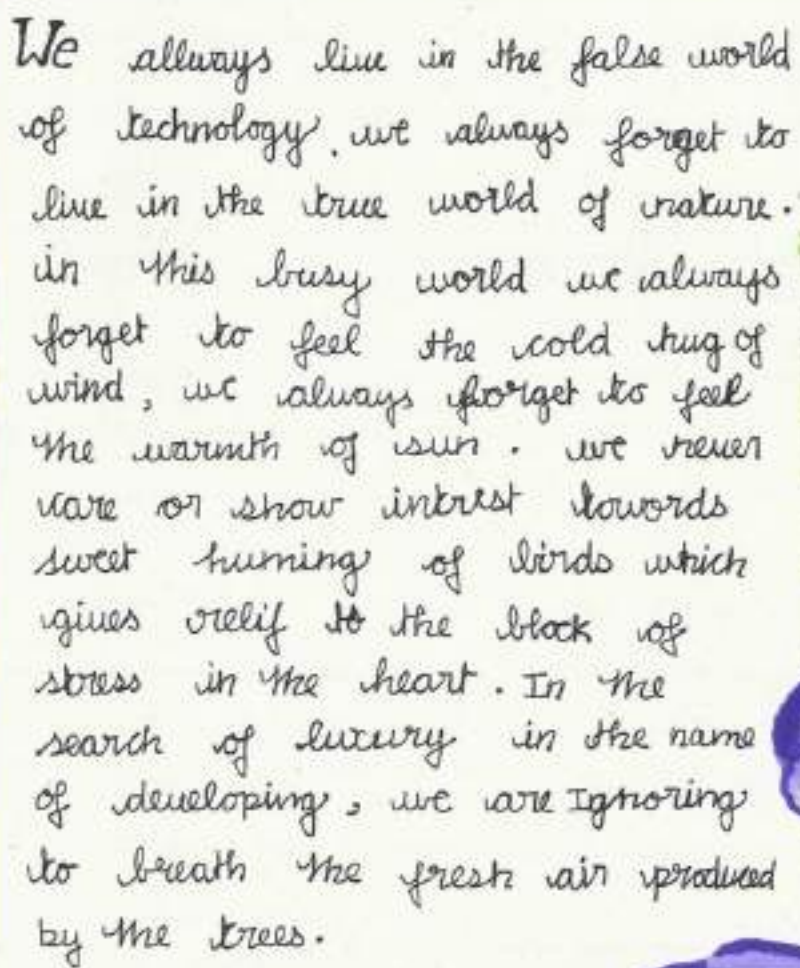 We allways live in the false world
of technology, we always forget to
live in the true world of nature.
in this busy world we always
forget to feel the cold hug of
wind, we always forget to feel
the warmth of sun. we never
care or show intrest towords
sweet huming of birds which
gives relif to the block of
stress in the heart. In the
search of luxury in the name
of developing, we are Ignoring
to breath the fresh air produced
by the trees.